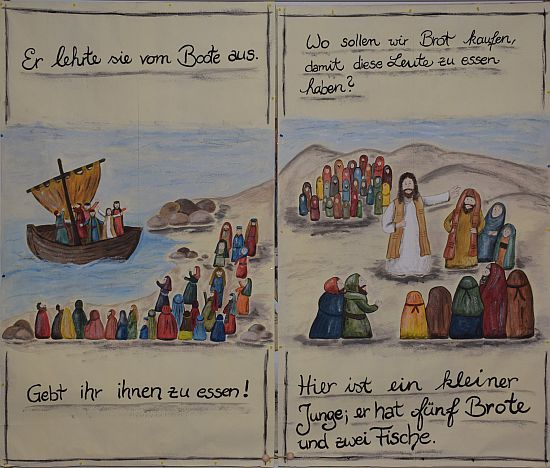 Er lehrte sie vom Boote aus.
Gebt ihr ihnen zu essen!
Wo sollen wir Brot kaufen,
damit diese Leute zu essen
haben?
Hier ist ein kleiner
Junge; er hat fünf Brote
und zwei Fische.